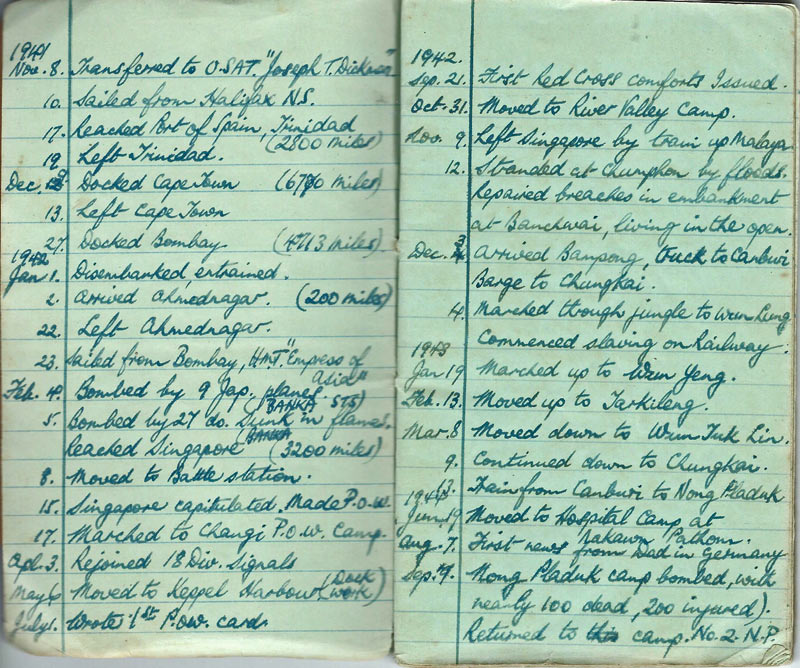 1941
Nov. 8. Transferred to O.S.A.T. "Joseph T. Dickman"
10. Sailed from Halifax N.S.
17. Reached Port of Spain, Trinidad
(2800 miles)
19. Left Trinidad.
Dec. 9 Docked Cape Town (6790 miles)
13. Left Cape Town
27. Docked Bombay (4713 miles).
1942
Jan 1. Disembarked, entrained.
2. Arrived Ahmednagar. (200 miles)
22. Left Ahmednagar.
23. Sailed from Bombay, H.M.T. "Empress of
Asia"
Feb. 4. Bombed by 9 Jap. planes.
BANKA STS)
5. Bombed by 27 do. Sunk in flames.
BANKA
Reached Singapore (3200 miles)
8. Moved to Battle station.
15. Singapore capitulated. Made P.O.W.
17. Marched to Changi P.O.W. Camp.
Apl. 3. Rejoined 18 Div. Signals
May 6 Moved to Keppel Harbour (Dock
work)
July 1. Wrote 1st P.O.W. card.
1942.
Sep. 21. First Red Cross comforts Issued.
Oct. 31. Moved to River Valley Camp.
Nov. 9. Left Singapore by train up Malaya
12. Stranded at Chumphon by floods.
Repaired breaches in embankment
at Banchwai, living in the open.
Dec. 3 Arrived Bampong, Truck to Canbwi
Barge to Chungkai.
4. Marched through jungle to Wun Lung
Commenced slaving on Railway.
1943
Jan. 19 Marched up to Wun Yeng.
Feb. 13. Moved up to Tarkileng.
Mar. 8 Moved down to Wun Tuk Lin.
9. Continued down to Chungkai.
13. Train from Canbwi to Nong Pladuk
Jun. 19 Moved to Hospital Camp at
Nakawn Pathom.
Aug. 7. First news from Dad in Germany
Sep. 7. Nong Pladuk camp bombed, with
nearly 100 dead, 200 injured).
Returned to this camp. No. 2. N.P.